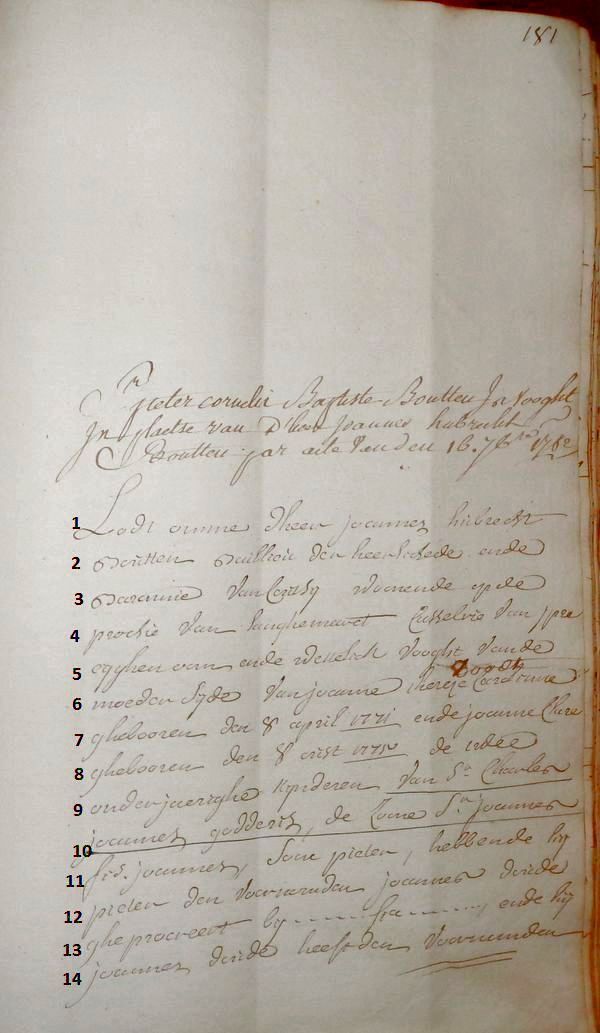 181
Sr pieter cornelis Baptiste Boutteu In vooght
In plaetse van D'heer Joannes hubrecht
Boutteu par acte van den 16. 7bre 1782
1 Lods omme dheer joannes hubrecht
2 Boutteu Bailliou der heerlichede ende
3 Baronnie Van wonende op de
4 prochie Van langhemarct Casselrie Van ypre
5 egghen oom ende wettelick vooght Vande
doodt
6 moeder syde Van joanne therese Carolinne
7 ghebooren den 8 april 1771 ende joanne Clare
8 ghebooren den 8 1775 de
9 onderjaerighe kynderen Van Sr Charles
10 joannes godderis, de Zone Sr joannes
11 fs. joannes, Sone pieter, hebbende hij
12 pieter den Voornomden joannes derde
13 gheprocreert by ........ fra ........, ende hij
14 joannes derde heeft den Voornomden